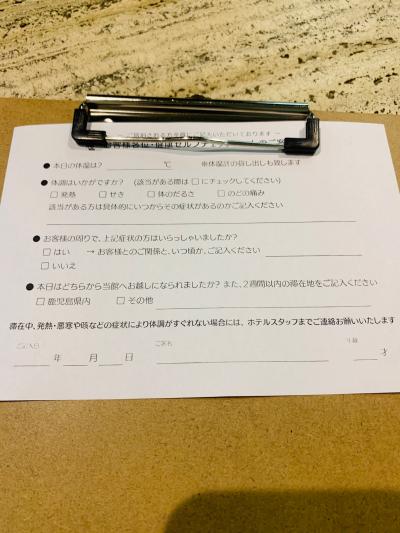 ● 本日の体温は? ℃ ※体温計の貸し出しも致します
● 体調はいかがですか? (該当がある際は □ にチェックしてください)
□ 発熱 □ せき □ 体のだるさ □ のどの痛み
該当がある方は具体的にいつからその症状があるのかご記入ください
● お客様の周りで、上記症状の方はいらっしゃいましたか?
□ はい → お客様とのご関係と、いつ頃か、ご記入ください
□ いいえ
● 本日はどちらから当館へお越しになられましたか? また、2週間以内の滞在地をご記入ください
□ 鹿児島県内 □ その他
滞在中、発熱・悪寒や咳などの症状により体調がすぐれない場合には、ホテルスタッフまでご連絡お願いいたします
ご記入日 ご芳名 年齢
年 月 日 才